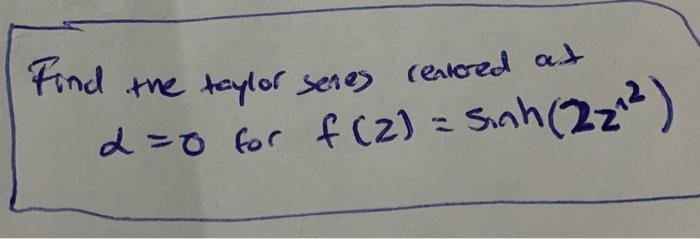 Find the taylor series centered at
α = 0 for f(z) = sinh(2z^2)